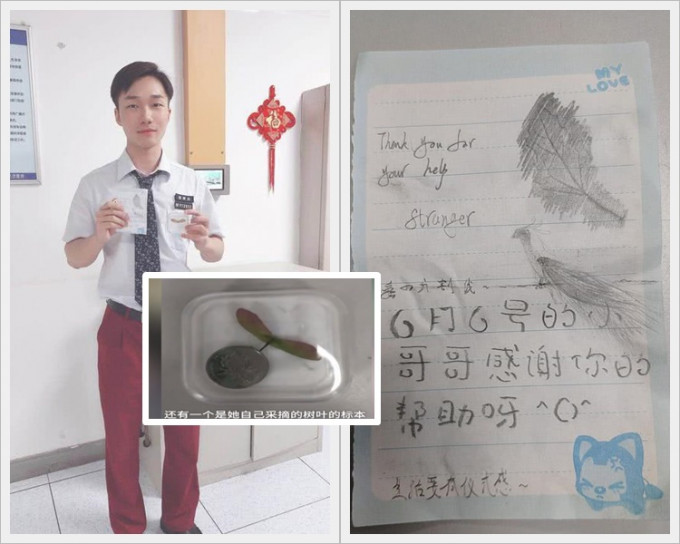 还有一个是她自己采摘的树叶的标本
MY
LOVE
Thank you for
your help
Stranger
6月6号的小
哥哥感谢你的
帮助呀^O^
生活要有仪式感~